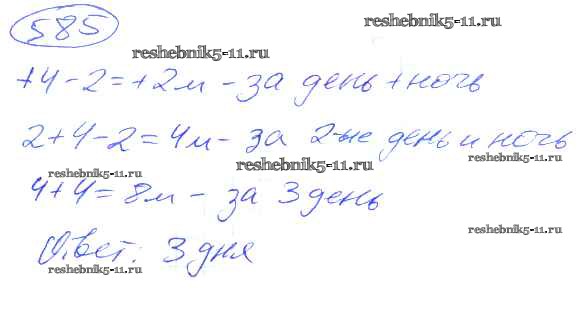 585
reshebnik5-11.ru
reshebnik5-11.ru
+4-2=+2м - за день+ночь
2+4-2=4м - за 2-ые день и ночь
reshebnik5-11.ru
reshebnik5-11.ru
reshebnik5-11.ru
4+4=8м - за 3 день
reshebnik5-11.ru
Ответ: 3 дня
reshebnik5-11.ru